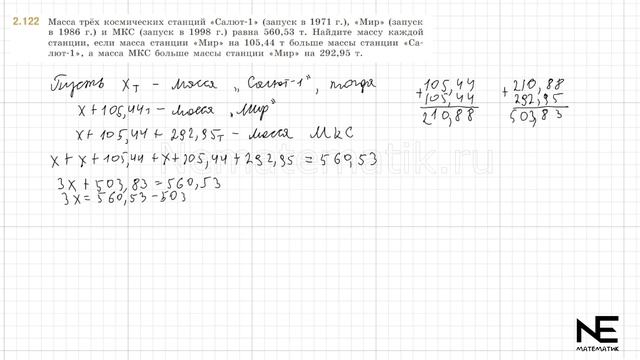 2.122 Масса трёх космических станций «Салют-1» (запуск в 1971 г.), «Мир» (запуск
в 1986 г.) и МКС (запуск в 1998 г.) равна 560,53 т. Найдите массу каждой
станции, если масса станции «Мир» на 105,44 т больше массы станции «Са-
лют-1», а масса МКС больше массы станции «Мир» на 292,95 т.
Пусть x т – масса „Салют-1", тогда
x+105,44т – масса „Мир"
x+105,44+292,95т – масса МКС
x+x+105,44+x+105,44+292,95=560,53
3x+503,83=560,53
3x=560,53-503
+105,44
105,44
210,88
+210,88
292,95
503,83
NE
МАТЕМАТИК